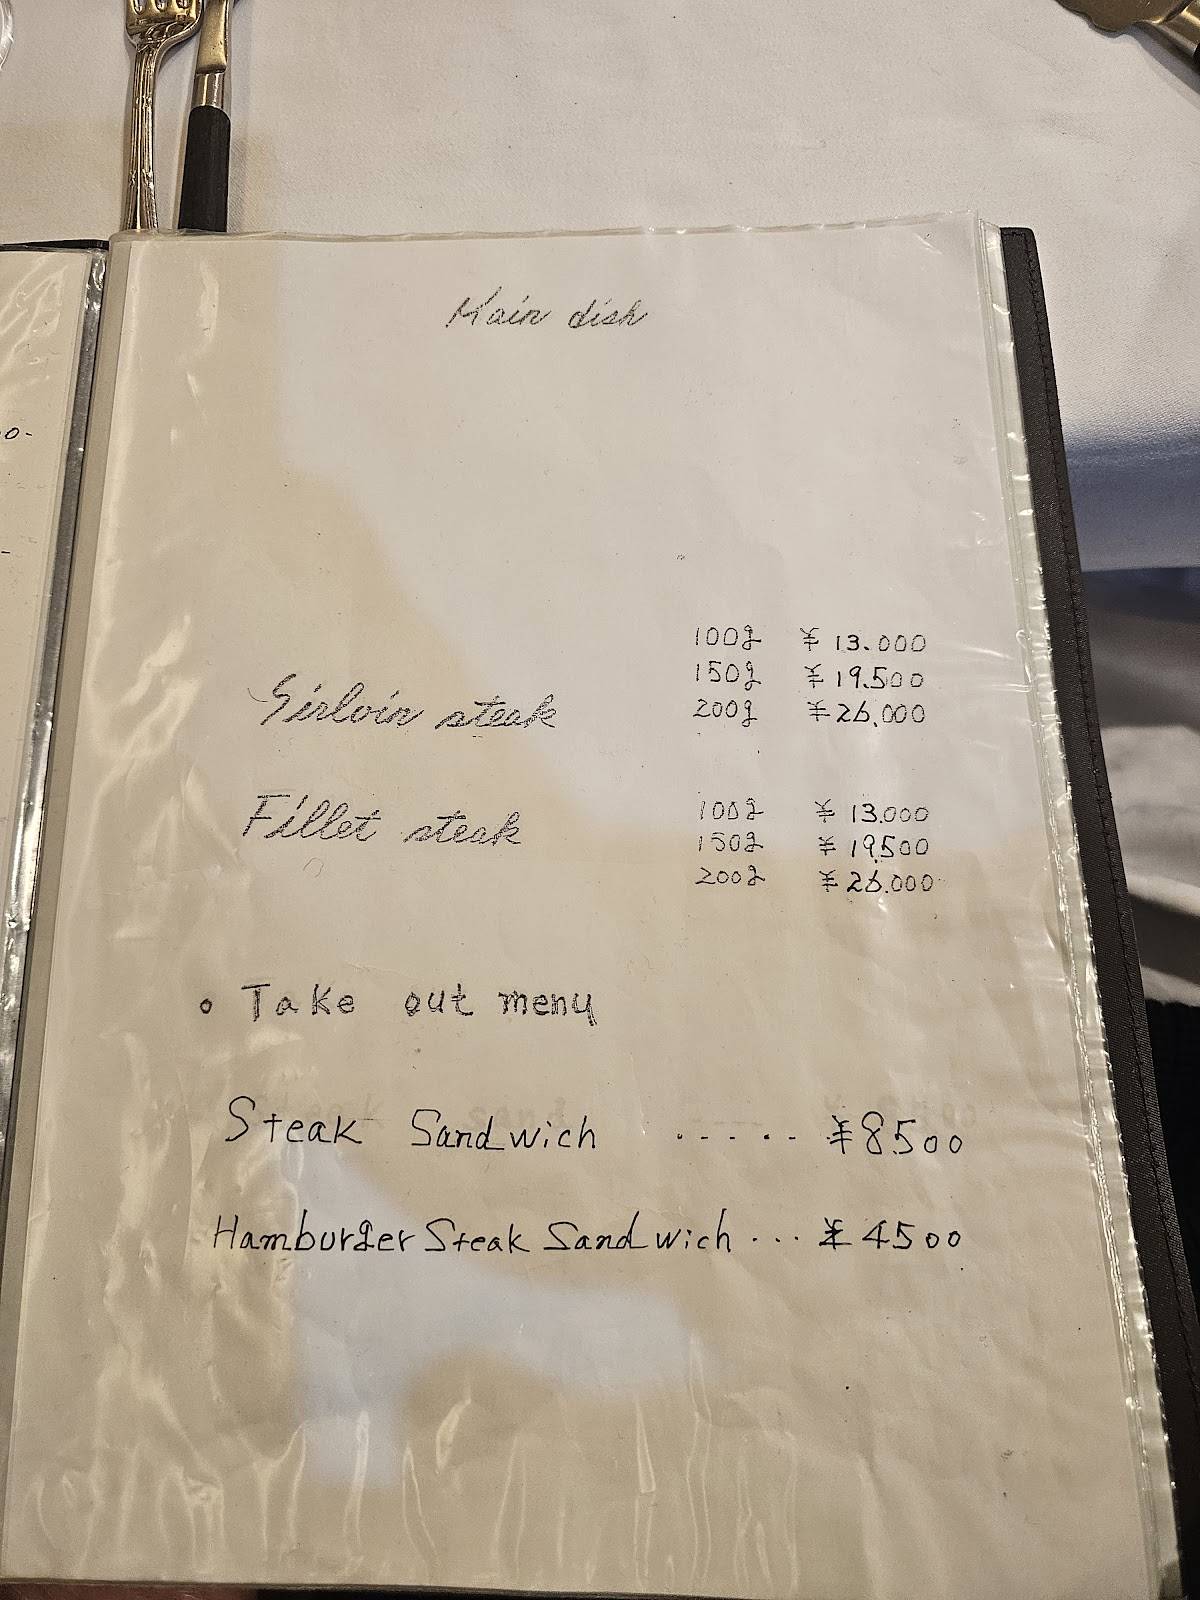 Main dish
100g ¥ 13.000
150g ¥ 19.500
Sirloin steak 200g ¥ 26.000
Fillet steak 100g ¥ 13.000
150g ¥ 19.500
200g ¥ 26.000
• Take out menu
Steak Sandwich ...... ¥8500
Hamburger Steak Sandwich ... ¥4500